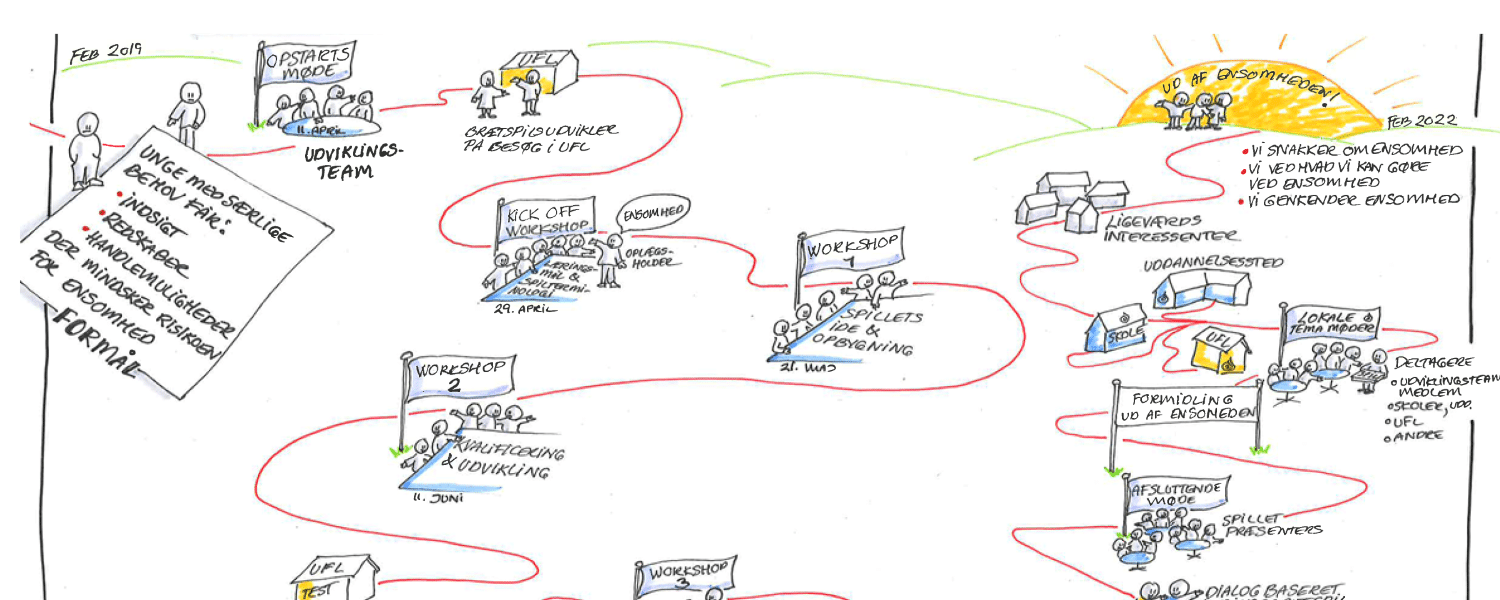 FEB 2019
OPSTARTS
MØDE
11. APRIL
UDVIKLINGS-
TEAM
UFL
BRÆTSPILSUDVIKLER
PÅ BESØG i UFL
UNGE MED SÆRLIGE
BEHOV FÅR:
• INDSIGT
• REDSKABER
• HANDLEMULIGHEDER
DER MINDSKER RISIKOEN
FOR ENSOMHED
FORMÅL
KICK OFF
WORKSHOP
ENSOMHED
OPLÆGS-
HOLDER
LÆRINGS-
MÅL &
SPILTERMI-
NOLOGI
29. APRIL
WORKSHOP
1
SPILLETS
IDE &
OPBYGNING
21. MAJ
WORKSHOP
2
KVALIFICERING
& UDVIKLING
11. JUNI
UFL
TEST
WORKSHOP
3
UD AF ENSOMHEDEN!
FEB 2022
• Vi SNAKKER OM ENSOMHED
• Vi VED HVAD Vi KAN GØRE
VED ENSOMHED
• Vi GENKENDER ENSOMHED
LIGEVÆRDS
INTERESSENTER
UDDANNELSESSTED
SKOLE
UFL
LOKALE
TEMA MØDER
DELTAGERE
o UDVIKLINGSTEAM
MEDLEM
o SKOLER, UDD.
o UFL
o ANDRE
FORMIDLING
UD AF ENSOMEDEN
AFSLUTTENDE
MØDE
SPILLET
PRÆSENTERS
DIALOG BASERET